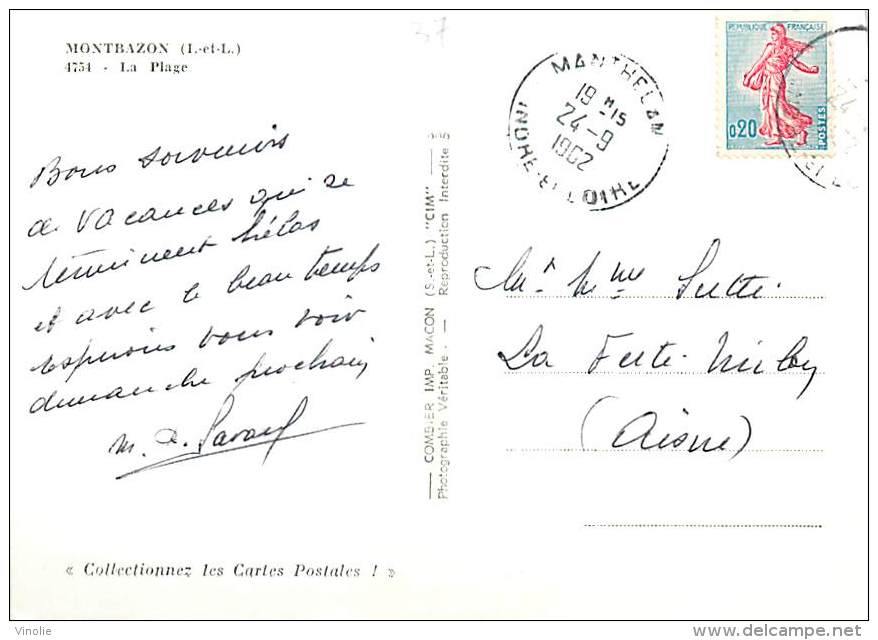 37
MONTBAZON (I.-et-L.)
4754 - La Plage
Bons souvenirs
de vacances qui se
terminent hélas
et avec le beau temps
espérons vous voir
dimanche prochain
M. A.
« Collectionnez les Cartes Postales ! »
COMBIER IMP. MACON (S.-et-L.) "CIM"
Photographie Véritable - Reproduction Interdite
MANTHELAN
19 H 15
24-9
1962
INDRE-ET-LOIRE
REPUBLIQUE FRANÇAISE
0,20
POSTES
Mr Mme
La Ferté-Milon
(Aisne)
Vinolie
delcampe.net